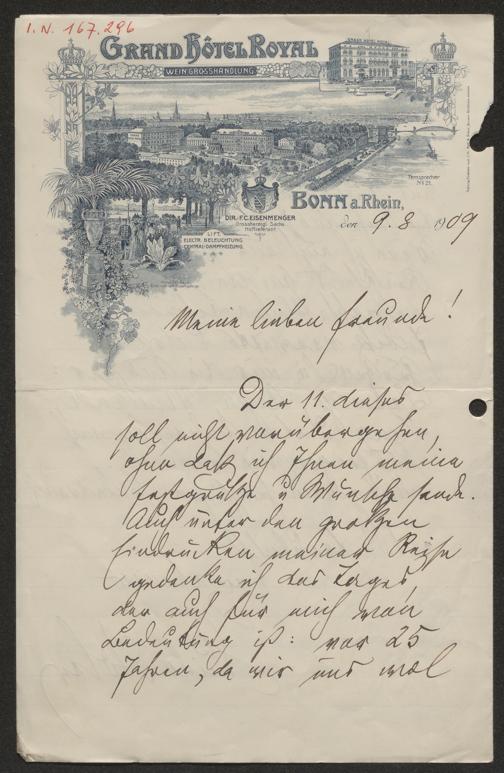 I. N. 167.296
GRAND HÔTEL ROYAL
WEINGROSSHANDLUNG
GRAND HOTEL ROYAL
Fernsprecher
No 21.
BONN a. Rhein,
DIR. F. C. EISENMENGER
Grossherzogl. Sächs.
Hoflieferant
LIFT.
ELECTR. BELEUCHTUNG
CENTRAL-DAMPFHEIZUNG.
den 9. 8 1909
Meine lieben Freunde!
Der 11. dieses
soll nicht vorübergehen,
ohne daß ich Ihnen meine
Festgrüße u Wünsche sende.
Auch unter den großen
Eindrücken meiner Reise
gedenke ich des Tages
der auch für mich von
Bedeutung ist: vor 25
Jahren, da wir uns wol